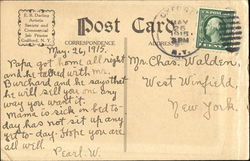 E. R. Darling
Artistic
Scenic and
Commercial
Job Printer
Guilford, N. Y.
Post Card
CORRESPONDENCE
MAY
3 PM
1915
N.Y.
May. 26, 1915.
Papa got home all right
and he talked with Mr.
Burchard and he says that
he will sell you one any
way you want it.
Mama is sick in bed to-
day has not sit up any
yet to-day. Hope you are
all well.
Pearl. W.
Mr. Chas. Walden,
West Winfield,
New York.